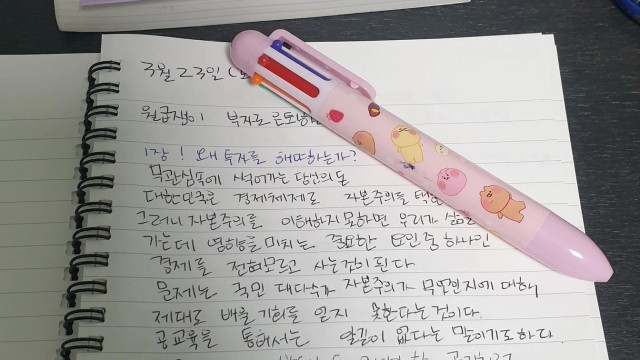 3월 23일 (
월급쟁이 부자로 은퇴하
1장! 왜 투자를 해야하는가?
무관심속에 썩어가는 당신의 돈
대한민국은 경제체제로 자본주의를 택한
그러니 자본주의를 이해하지 못하면 우리가 삶을
기는데 영향을 미치는 중요한 요인 중 하나인
경제를 전혀모르고 사는것이 된다
문제는 국민 대다수가 자본주의가 무엇인지에 대해,
제대로 배울 기회를 얻지 못한다는것이다.
공교육을 통해서는 알길이 없다는 말이기도 하다.